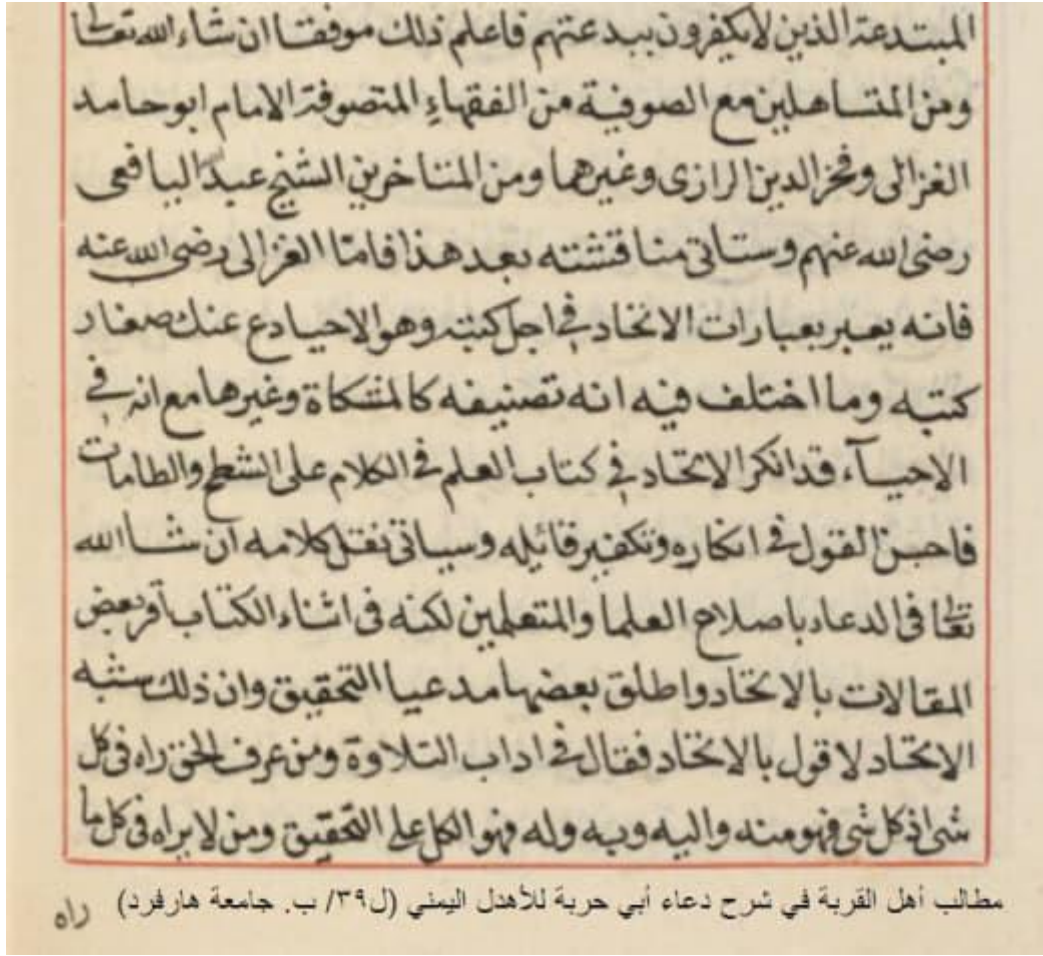 المبتدعة الذين لا يكفرون ببدعتهم فاعلم ذلك موفقا ان شاء الله تعالى
ومن المتساهلين مع الصوفية من الفقهاء المتصوفة الامام ابو حامد
الغزالى وفخر الدين الرازى وغيرهما ومن المتاخرين الشيخ عبد اليافعى
رضى الله عنهم وستاتى مناقشته بعد هذا فامّا الغزالى رضى الله عنه
فانه يعبر بعبارات الاتحاد في اجل كتبه وهو الاحيا دع عنك صغار
كتبه وما اختلف فيه انه تصنيفه كالمشكاة وغيرها مع انه في
الاحيآء قد انكر الاتحاد في كتاب العلم في الكلام على الشطح والطامات
فاحسن القول في انكاره وتكفير قائله وسياتى نقل كلامه ان شا الله
تعالى فى الدعاء باصلاح العلما والمتعلمين لكنه فى اثناء الكتاب اقر بعض
المقالات بالاتحاد واطلق بعضها مدعيا التحقيق وان ذلك شبه
الاتحاد لا قول بالاتحاد فقال في اداب التلاوة ومن عرف الحق راه فى كل
شى اذ كل شى فهو منه واليه وبه وله فهو الكل على التحقيق ومن لا يراه فى كل ما
راه
مطالب أهل القربة في شرح دعاء أبي حربة للأهدل اليمني (ل٣٩/ ب. جامعة هارفرد)